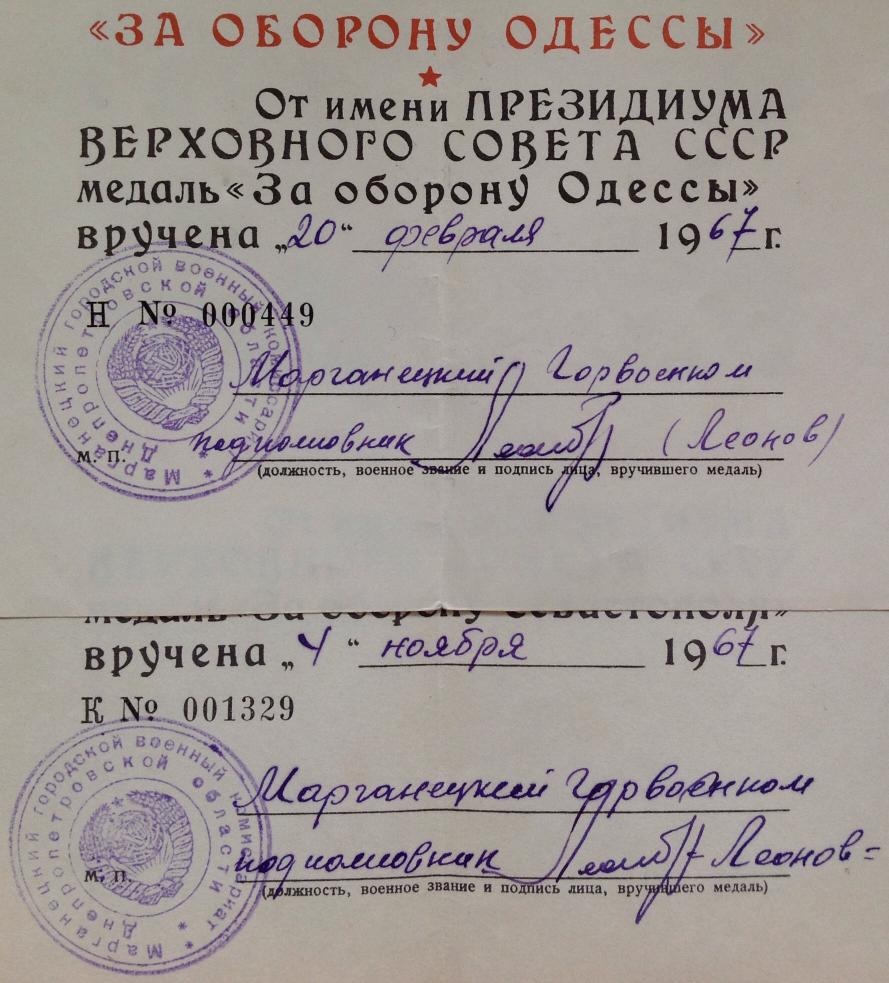 «ЗА ОБОРОНУ ОДЕССЫ»
От имени ПРЕЗИДИУМА
ВЕРХОВНОГО СОВЕТА СССР
медаль «За оборону Одессы»
вручена „20“ февраля 1967 г.
Н № 000449
Марганецкий городской военный комиссариат
Днепропетровской области
Марганецкий Горвоенком
подполковник (Леонов)
м. п.
(должность, военное звание и подпись лица, вручившего медаль)
медаль «За оборону Севастополя»
вручена „4“ ноября 1967 г.
К № 001329
Марганецкий городской военный комиссариат
Днепропетровской области
Марганецкий Горвоенком
подполковник Леонов
м. п.
(должность, военное звание и подпись лица, вручившего медаль)